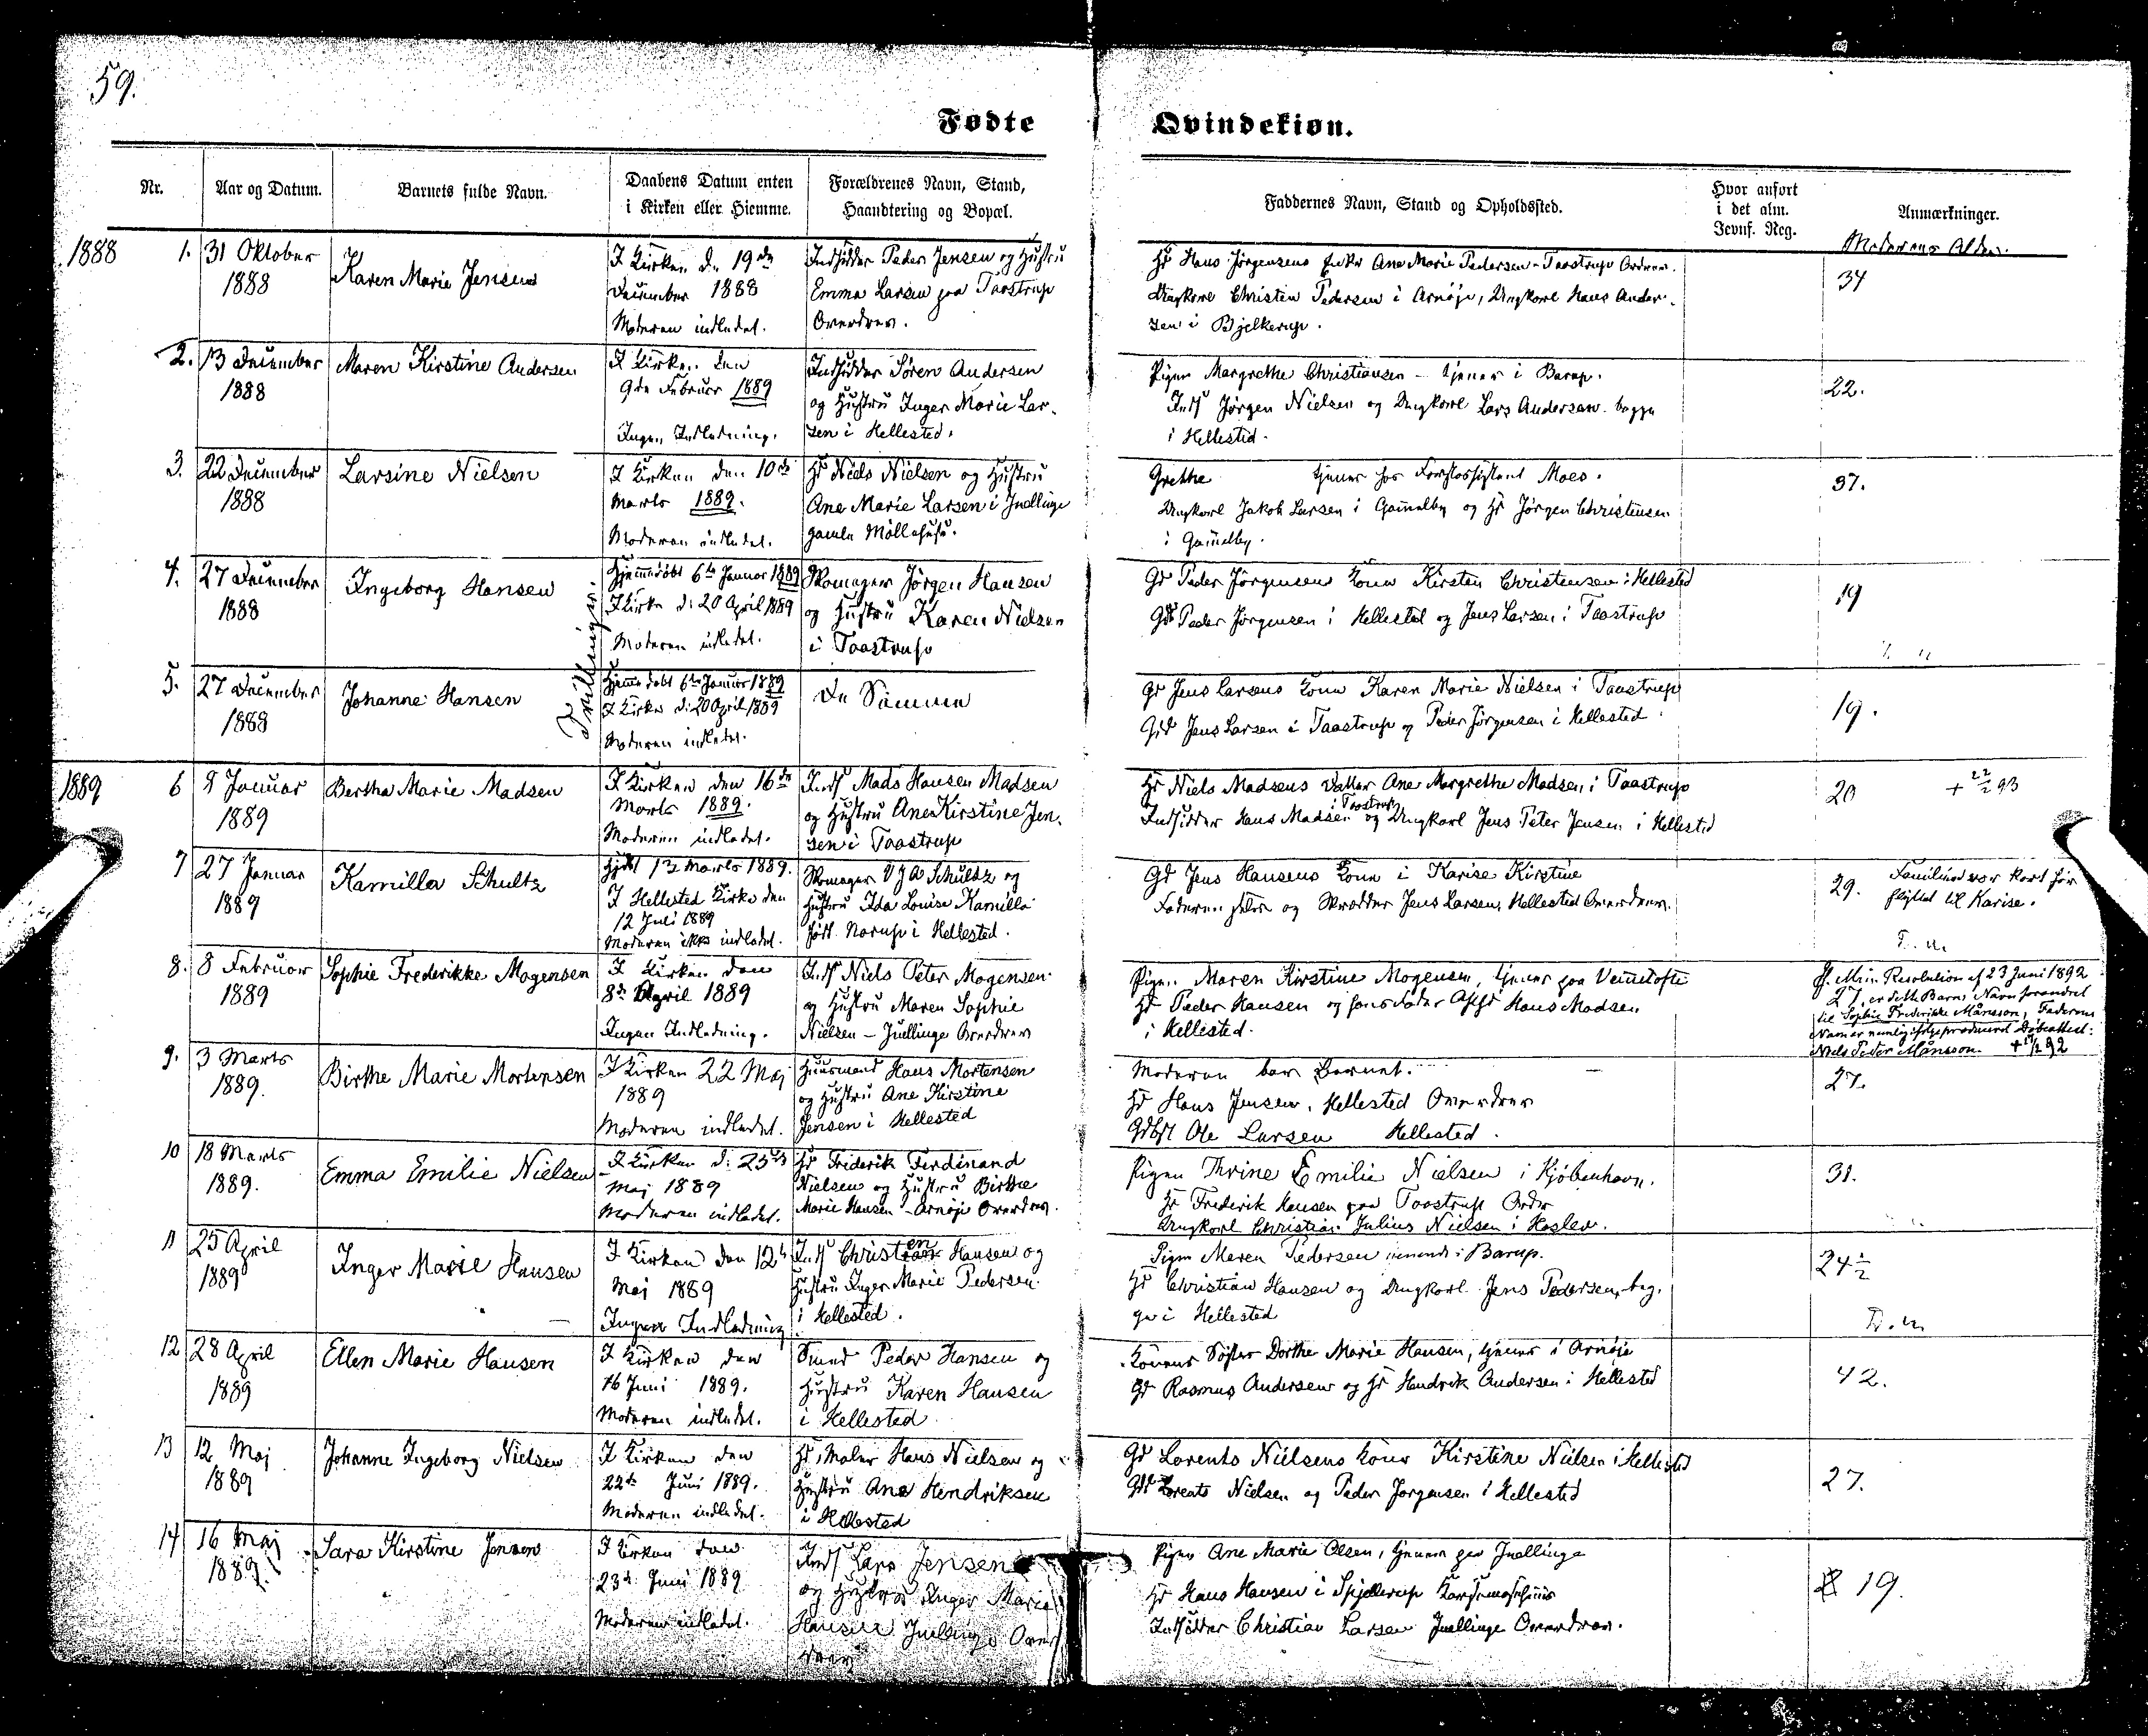 59.
Fødte Qvindekiøn.
Nr.
Aar og Datum.
Barnets fulde Navn.
Daabens Datum enten
i Kirken eller Hiemme.
Forældrenes Navn, Stand,
Haandtering og Bopæl.
Faddernes Navn, Stand og Opholdssted.
Hvor anført
i det alm.
Jevnf. Reg.
Anmærkninger.
Moderens Alder.
1888
1.
31 Oktober
1888
Karen Marie Jensen
I Kirken d. 19de
December 1888
Moderen indledet.
Indsidder Peder Jensen og Hustru
Emma Larsen paa Taastrup
Overdrev.
Hd Hans Jörgensens Enke Ane Marie Pedersen - Taastrup Overdrev.
Ungkarl Christen Pedersen i Arnöje, Ungkarl Hans Ander-
sen i Bjelkerup.
34
2.
13 December
1888
Maren Kirstine Andersen
I Kirken den
9de Februar 1889
Ingen Indledning.
Indsidder Sören Andersen
og Hustru Inger Marie Lar-
sen i Hellested.
Pigen Margrethe Christiansen - tjener i Barup.
Inds Jörgen Nielsen og Ungkarl Lars Andersen begge
i Hellested.
22.
3.
22 December
1888
Larsine Nielsen
I Kirken den 10de
Marts 1889.
Moderen indledet.
Hd Niels Nielsen og Hustru
Ane Marie Larsen i Juellinge
gamle Möllehuse.
Grethe tjener hos Forstassistent Moes.
Ungkarl Jakob Larsen i Gammelby og Hd Jörgen Christensen
i Gammelby.
37.
4.
27 December
1888
Ingeborg Hansen
Tvillinger.
Hjemmedöbt 6te Januar 1889
I Kirke d. 20 April 1889
Moderen indledet.
Skomager Jörgen Hansen
og Hustru Karen Nielsen
i Taastrup
Gd Peder Jörgensens Kone Kirsten Christensen i Hellested
Gd Peder Jörgensen i Hellested og Jens Larsen i Taastrup
19
5.
27 December
1888
Johanne Hansen
Hjemmedöbt 6te Januar 1889
I Kirke d. 20 April 1889
Moderen indledet.
De Samme
Gd Jens Larsens Kone Karen Marie Nielsen i Taastrup
Gd Jens Larsen i Taastrup og Peder Jörgensen i Hellested.
19.
1889
6
8 Januar
1889
Bertha Marie Madsen
I Kirken den 16de
Marts 1889.
Moderen indledet.
Inds Mads Hansen Madsen
og Hustru Ane Kirstine Jen-
sen i Taastrup
Hd Niels Madsens Datter Ane Margrethe Madsen i Taastrup
Indsidder Hans Madsen i Taastrup og Ungkarl Jens Peter Jensen i Hellested
20
+ 22/2 93
7
27 Januar
1889
Kamilla Schultz
Hjdbt 13 Marts 1889.
I Hellested Kirke den
12 Juli 1889
Moderen ikke indledet.
Skomager V J A Schultz og
Hustru Ida Louise Kamilla
födt Norup i Hellested.
Gd Jens Hansens Kone i Karise Kirstine
Faderen selv og Skrædder Jens Larsen, Hellested Overdrev.
29.
Familien var kort för
flyttet til Karise.
8.
8 Februar
1889
Sophie Frederikke Mogensen
I Kirken den
8de April 1889
Ingen Indledning.
Inds Niels Peter Mogensen
og Hustru Maren Sophie
Nielsen - Juellinge Overdrev
Pigen Maren Kirstine Mogensen, tjener paa Vemmetofte
Hd Peder Hansen og Hans Madsen
i Hellested.
Min. Resolution af 23 Juni 1892
27. er dette Barns Navn forandret
til Sophie Frederikke Månsson, Faderens
Navn er nemlig ifölge produceret Döbeattest:
Niels Peter Månsson.
9.
3 Marts
1889.
Birthe Marie Mortensen
I Kirken 22 Maj
1889
Moderen indledet.
Huusmand Hans Mortensen
og Hustru Ane Kirstine
Jensen i Hellested
Moderen bar Barnet.
Hd Hans Jensen, Hellested Overdrev
Ole Larsen Hellested.
27.
10
18 Marts
1889.
Emma Emilie Nielsen
I Kirken d. 25de
Maj 1889
Moderen indledet.
Hd Friderik Ferdinand
Nielsen og Hustru Birthe
Marie Hansen - Arnöje Overdrev.
Pigen Thrine Emilie Nielsen i Kjöbenhavn.
Hd Frederik Hansen paa Taastrup Ovdr
Ungkarl Christian Julius Nielsen i Haslev.
31.
11
25 April
1889
Inger Marie Hansen
I Kirken den 12te
Maj 1889
Ingen Indledning
Inds Christen Hansen og
Hustru Inger Marie Pedersen
i Hellested.
Pigen Maren Pedersen tjenende i Barup.
Hd Christian Hansen og Ungkarl Jens Pedersen, beg-
ge i Hellested
24 1/2
12
28 April
1889
Ellen Marie Hansen
I Kirken den
16 Juni 1889.
Moderen indledet.
Smed Peder Hansen og
Hustru Karen Hansen
i Hellested
Konens Söster Dorthe Marie Hansen, tjener i Arnöje
Gd Rasmus Andersen og Hd Hendrik Andersen i Hellested
42.
13
12 Maj
1889
Johanne Ingeborg Nielsen
I Kirken den
22de Juni 1889.
Moderen indledet.
Hd, Maler Hans Nielsen og
Hustru Ane Hendriksen
i Hellested
Gd Lorents Nielsens Kone Kirstine Nielsen i Hellested
Gd Lorents Nielsen og Peder Jörgensen i Hellested
27.
14
16 Maj
1889.
Sara Kirstine Jensen
I Kirken den
23de Juni 1889
Moderen indledet.
Inds Lars Jensen
og Hustru Inger Marie
Hansen Juellinge Over-
drev
Pigen Ane Marie Olsen, tjener paa Juellinge
Hd Hans Hansen i Spjellerup
Indsidder Christian Larsen Juellinge Overdrev.
19.